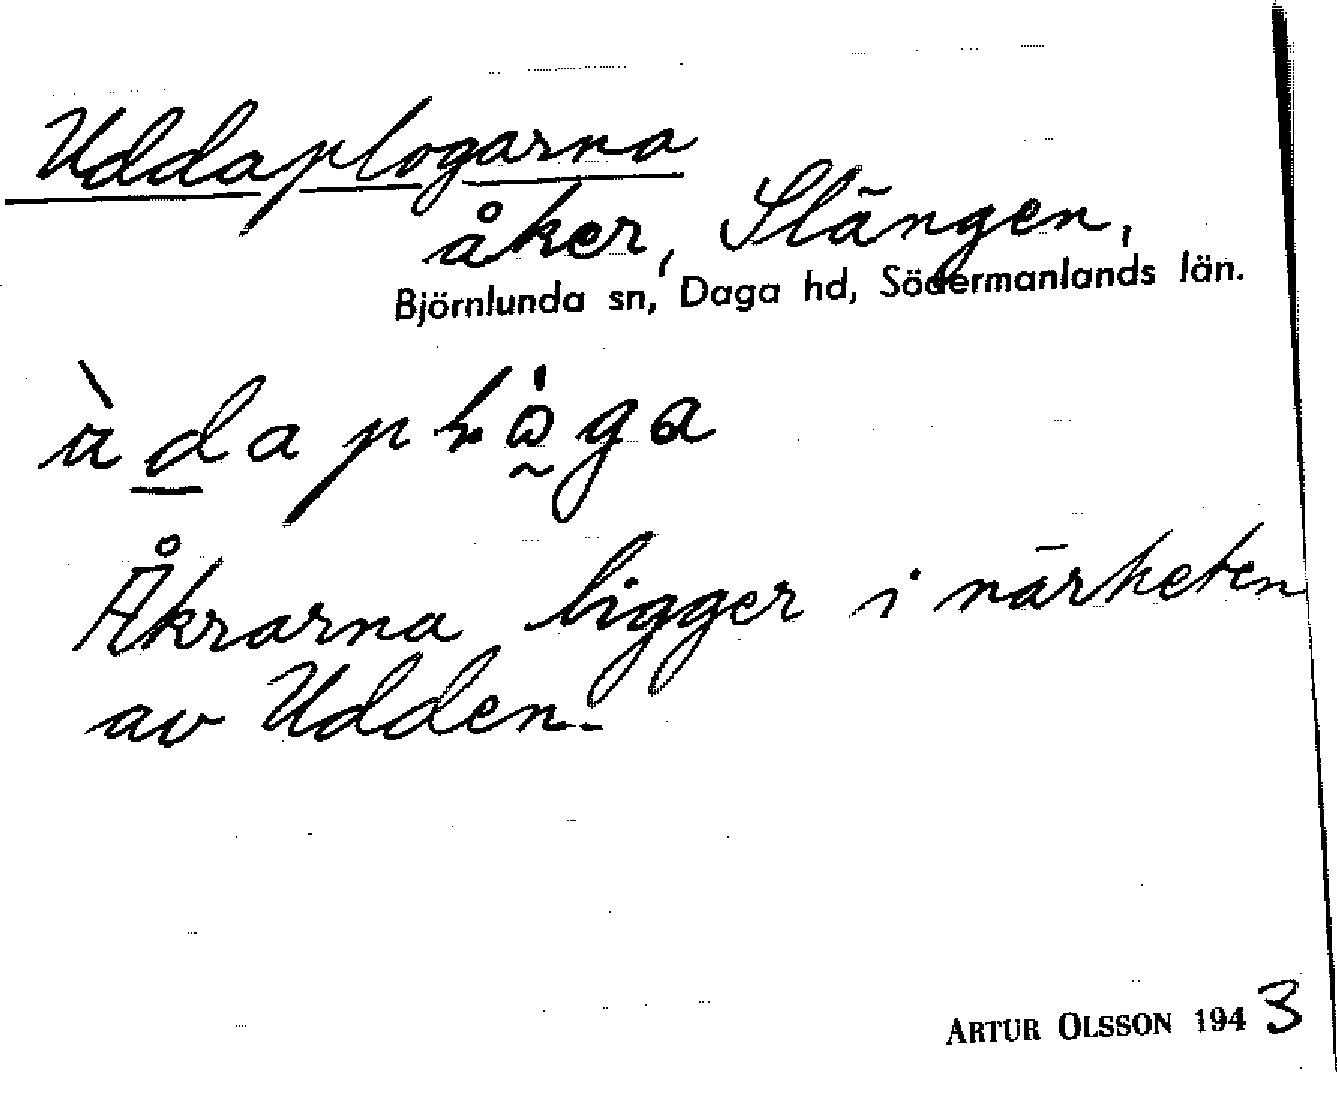 Uddaplogarna
åker, Slängen,
Björnlunda sn, Daga hd, Södermanlands län.
Åkrarna ligger i närheten
av Udden.
ARTUR OLSSON 1943